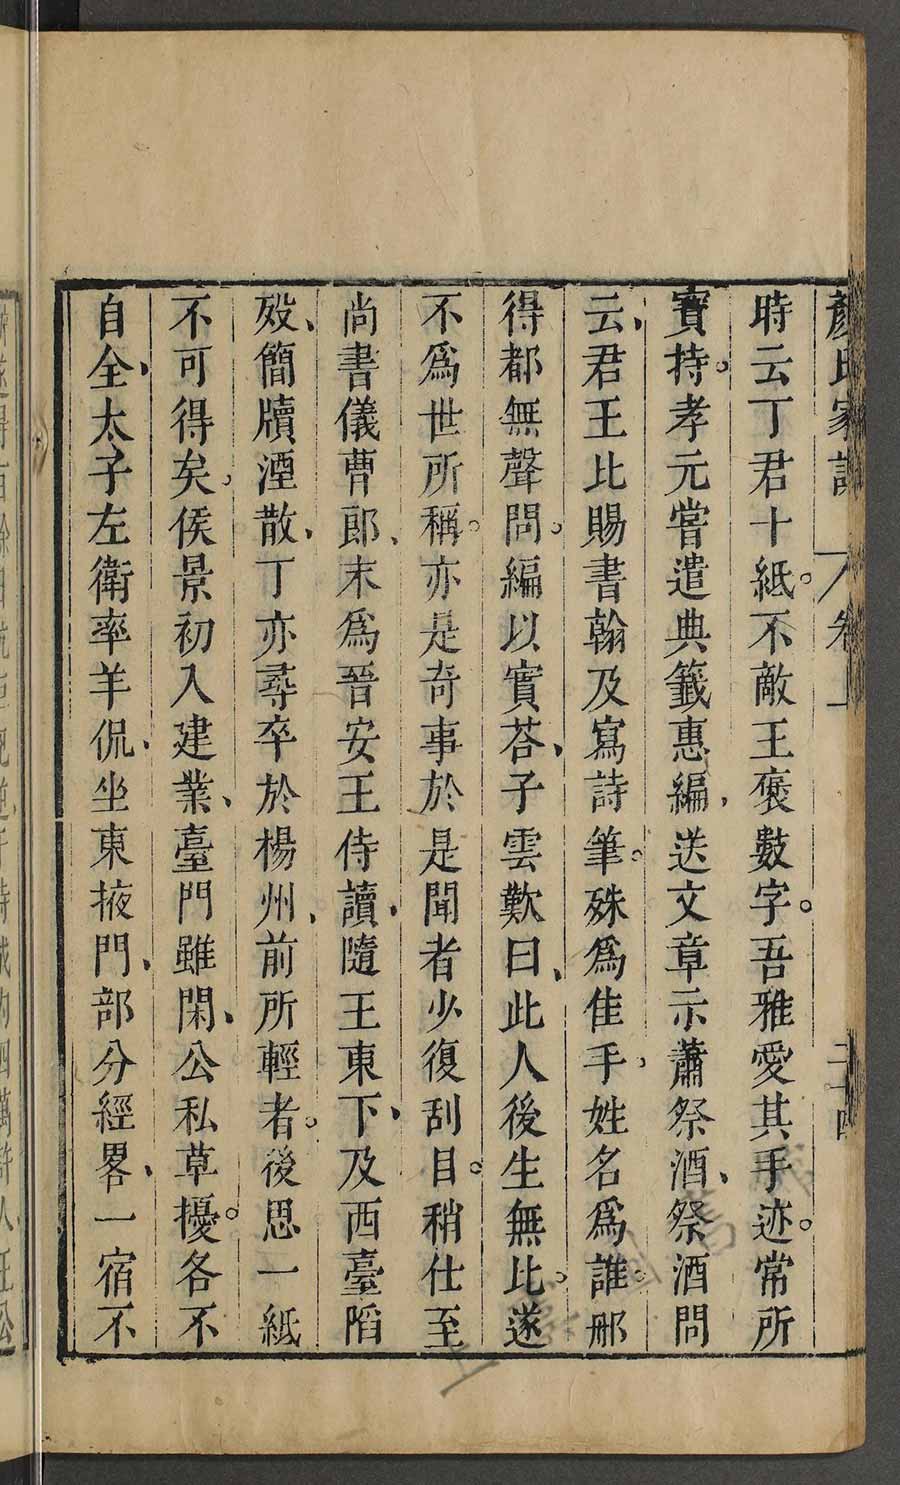 顏氏家訓 卷上 二十四
時云丁君十紙。不敵王褒數字。吾雅愛其手迹。常所
寶持。孝元嘗遣典籤惠編、送文章示蕭祭酒、祭酒問
云、君王比賜書翰及寫詩筆。殊爲佳手、姓名爲誰。那
得都無聲問。編以實荅、子雲歎曰、此人後生無比。遂
不爲世所稱。亦是奇事於是聞者少復刮目。稍仕至
尚書儀曹郎、末爲晉安王侍讀、隨王東下、及西臺陷
歿、簡牘湮散、丁亦尋卒於楊州、前所輕者。後思一紙
不可得矣。侯景初入建業、臺門雖閑、公私草擾。各不
自全、太子左衛率羊侃、坐東掖門、部分經畧、一宿不